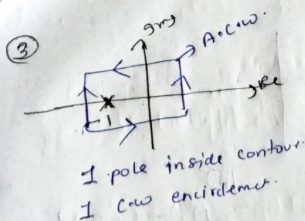 3
Img
A.C.W.
Re
-1
1 pole inside contour.
1 C.W encirclement.